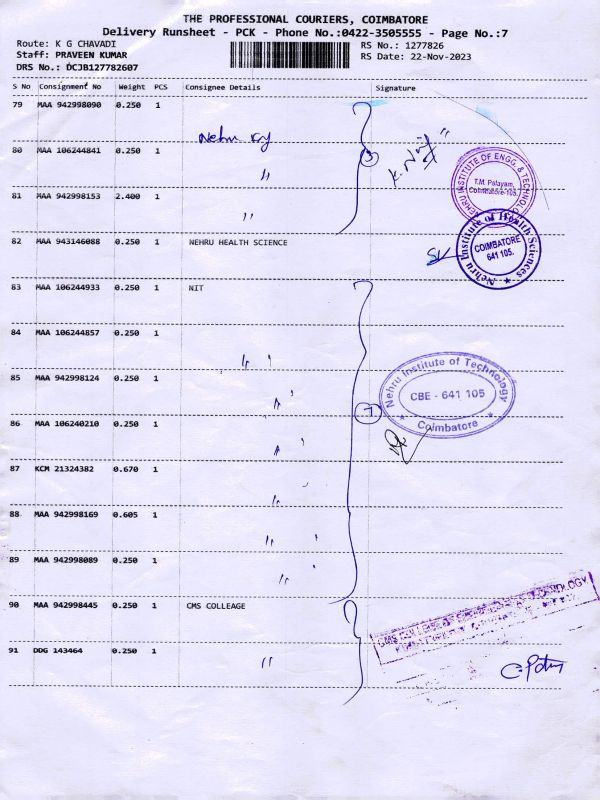 THE PROFESSIONAL COURIERS, COIMBATORE
Delivery Runsheet - PCK - Phone No.:0422-3505555 - Page No.:7
Route: K G CHAVADI
RS No.: 1277826
Staff: PRAVEEN KUMAR
RS Date: 22-Nov-2023
DRS No.: DCJB127782607
S No Consignment No Weight PCS Consignee Details Signature
79 MAA 942998090 0.250 1
Nehru
3
80 MAA 106244841 0.250 1 "
NEHRU INSTITUTE OF ENGG. & TECHNOLOGY
T.M. Palayam,
Coimbatore-105.
81 MAA 942998153 2.400 1 "
82 MAA 943146088 0.250 1 NEHRU HEALTH SCIENCE
Nehru Institute of Health Sciences
COIMBATORE
641 105.
83 MAA 106244933 0.250 1 NIT
84 MAA 106244857 0.250 1 "
85 MAA 942998124 0.250 1 "
7
Nehru Institute of Technology
CBE - 641 105
Coimbatore
86 MAA 106240210 0.250 1 "
87 KCM 21324382 0.670 1 "
88 MAA 942998169 0.605 1 "
89 MAA 942998089 0.250 1 "
90 MAA 942998445 0.250 1 CMS COLLEAGE
CMS COLLEGE OF
91 DDG 143464 0.250 1 "